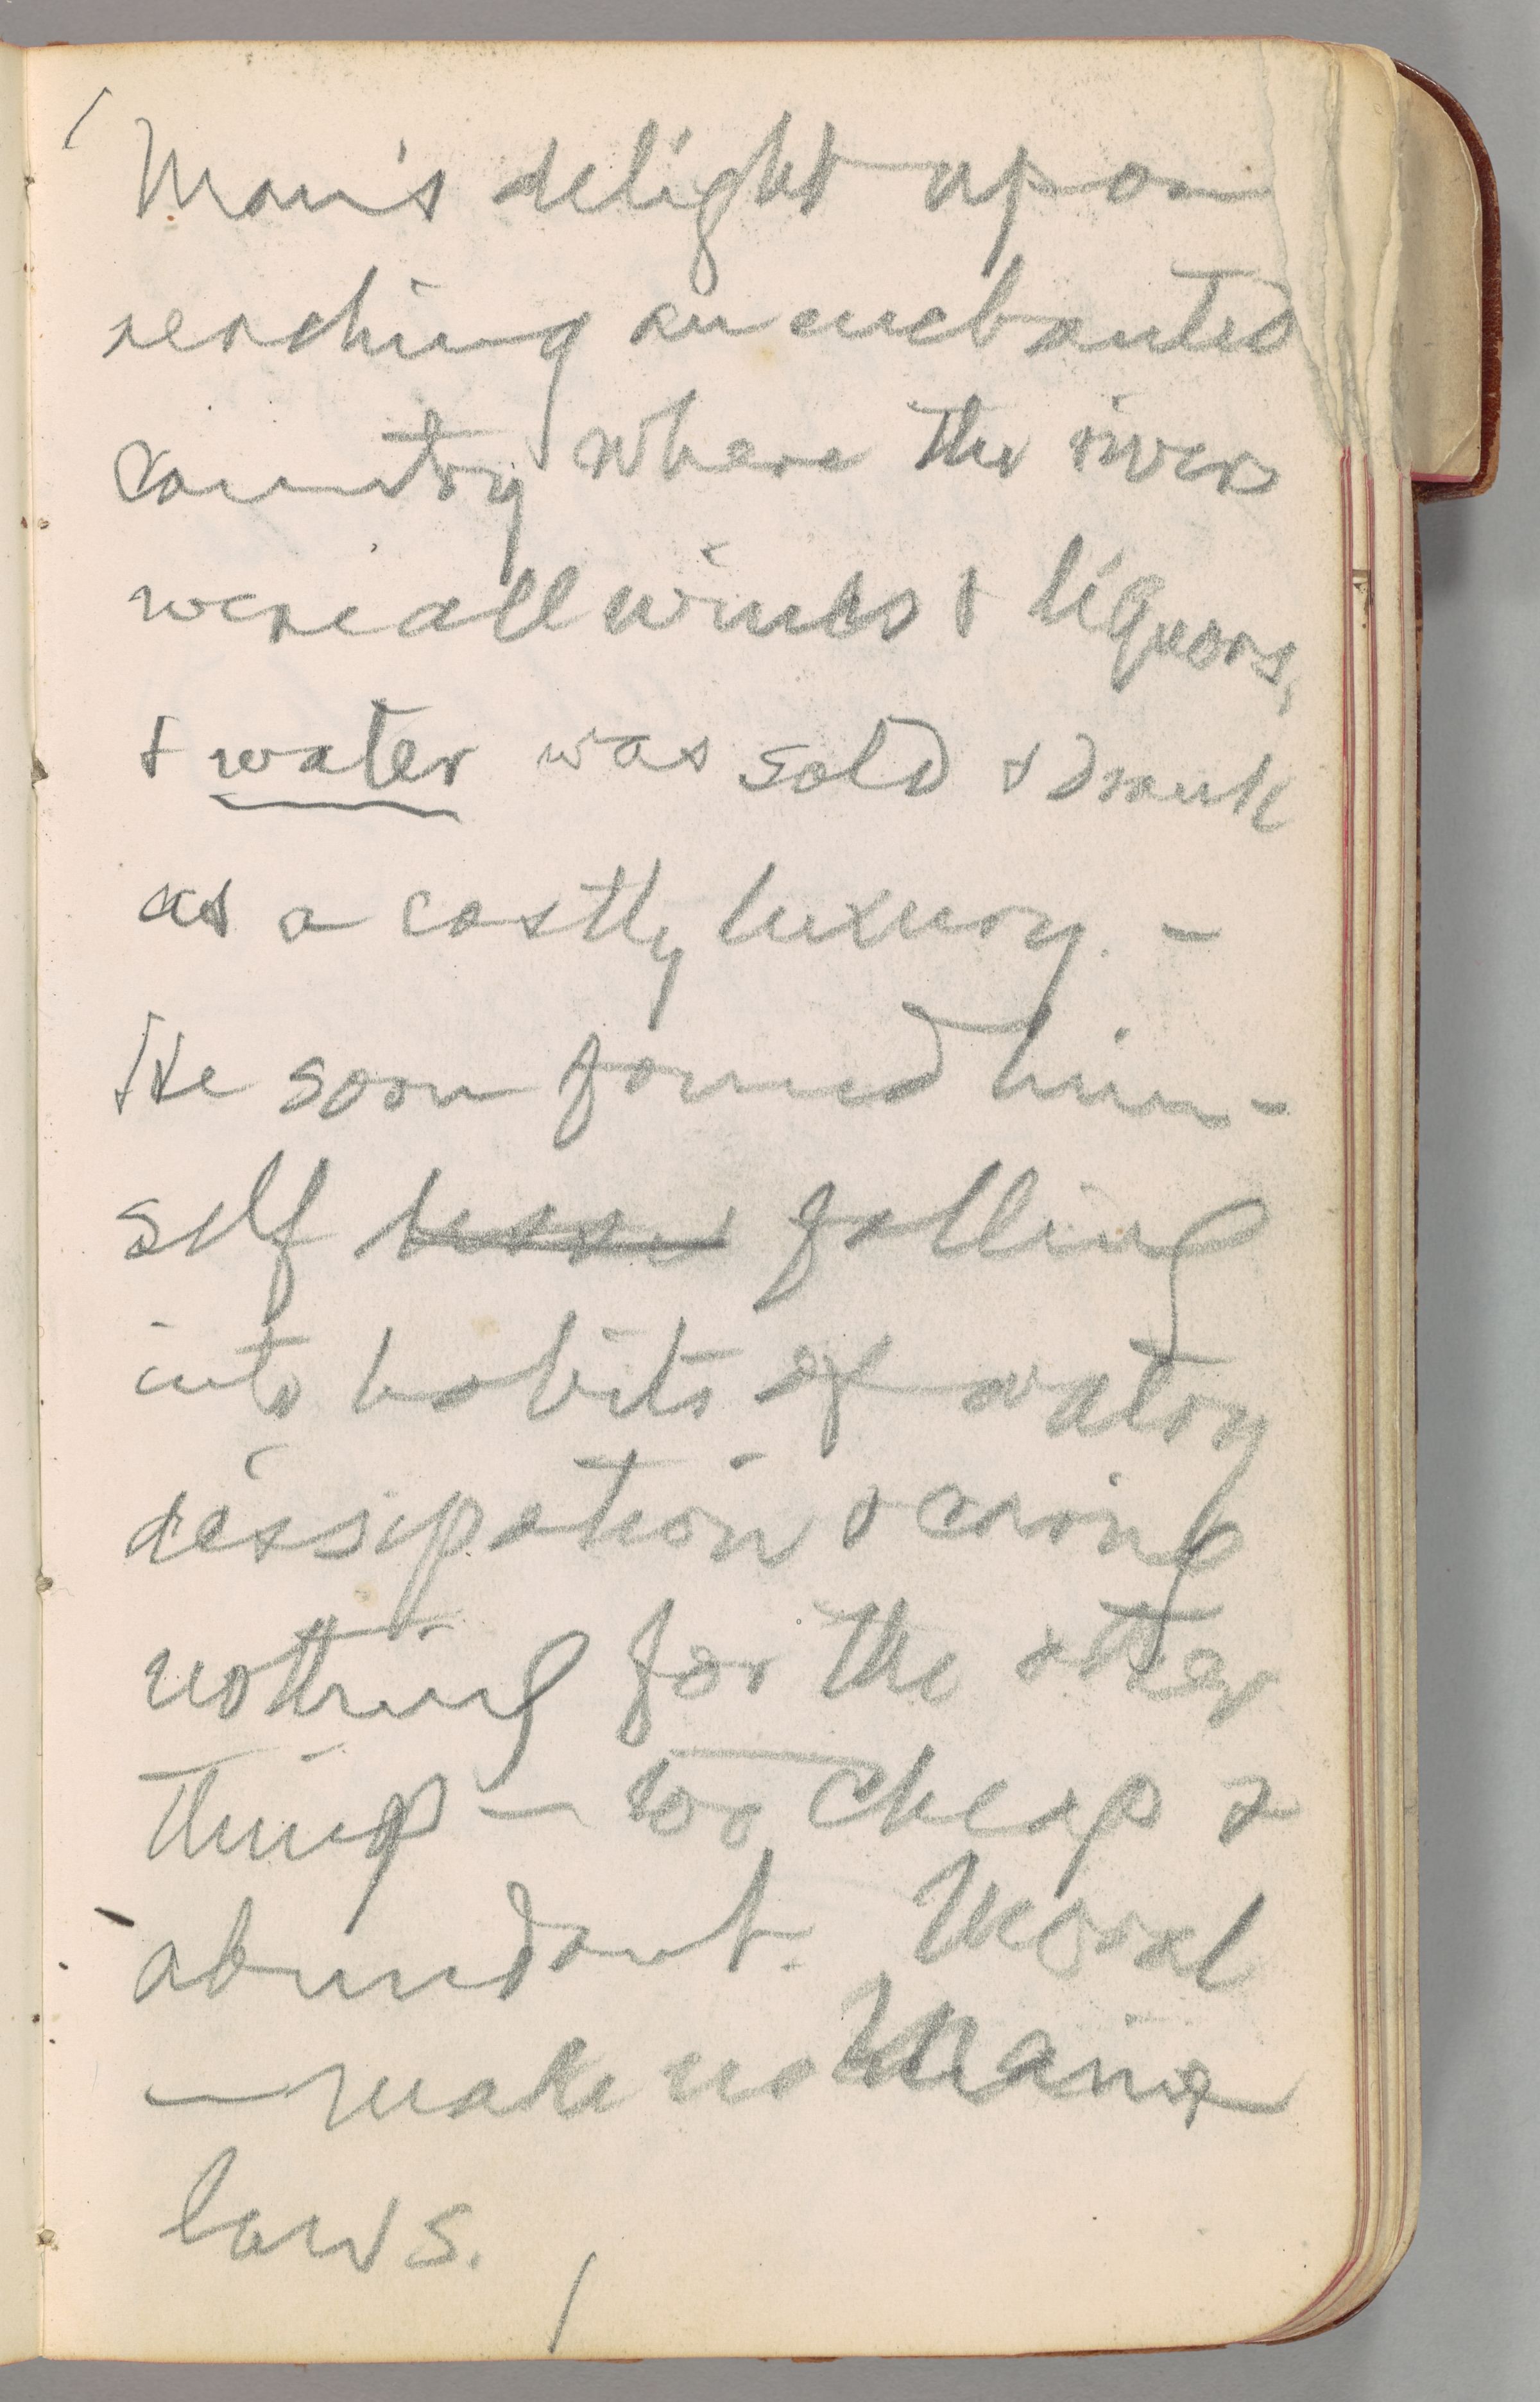 Man's delight upon
reaching an enchanted
country where the rivers
were all wines & liquors,
& water was sold & drunk
as a costly luxury. –
He soon found him-
self falling
into habits of watery
dissipation & caring
nothing for the other
thing – too cheap &
abundant. Moral
– make no Maine
laws.